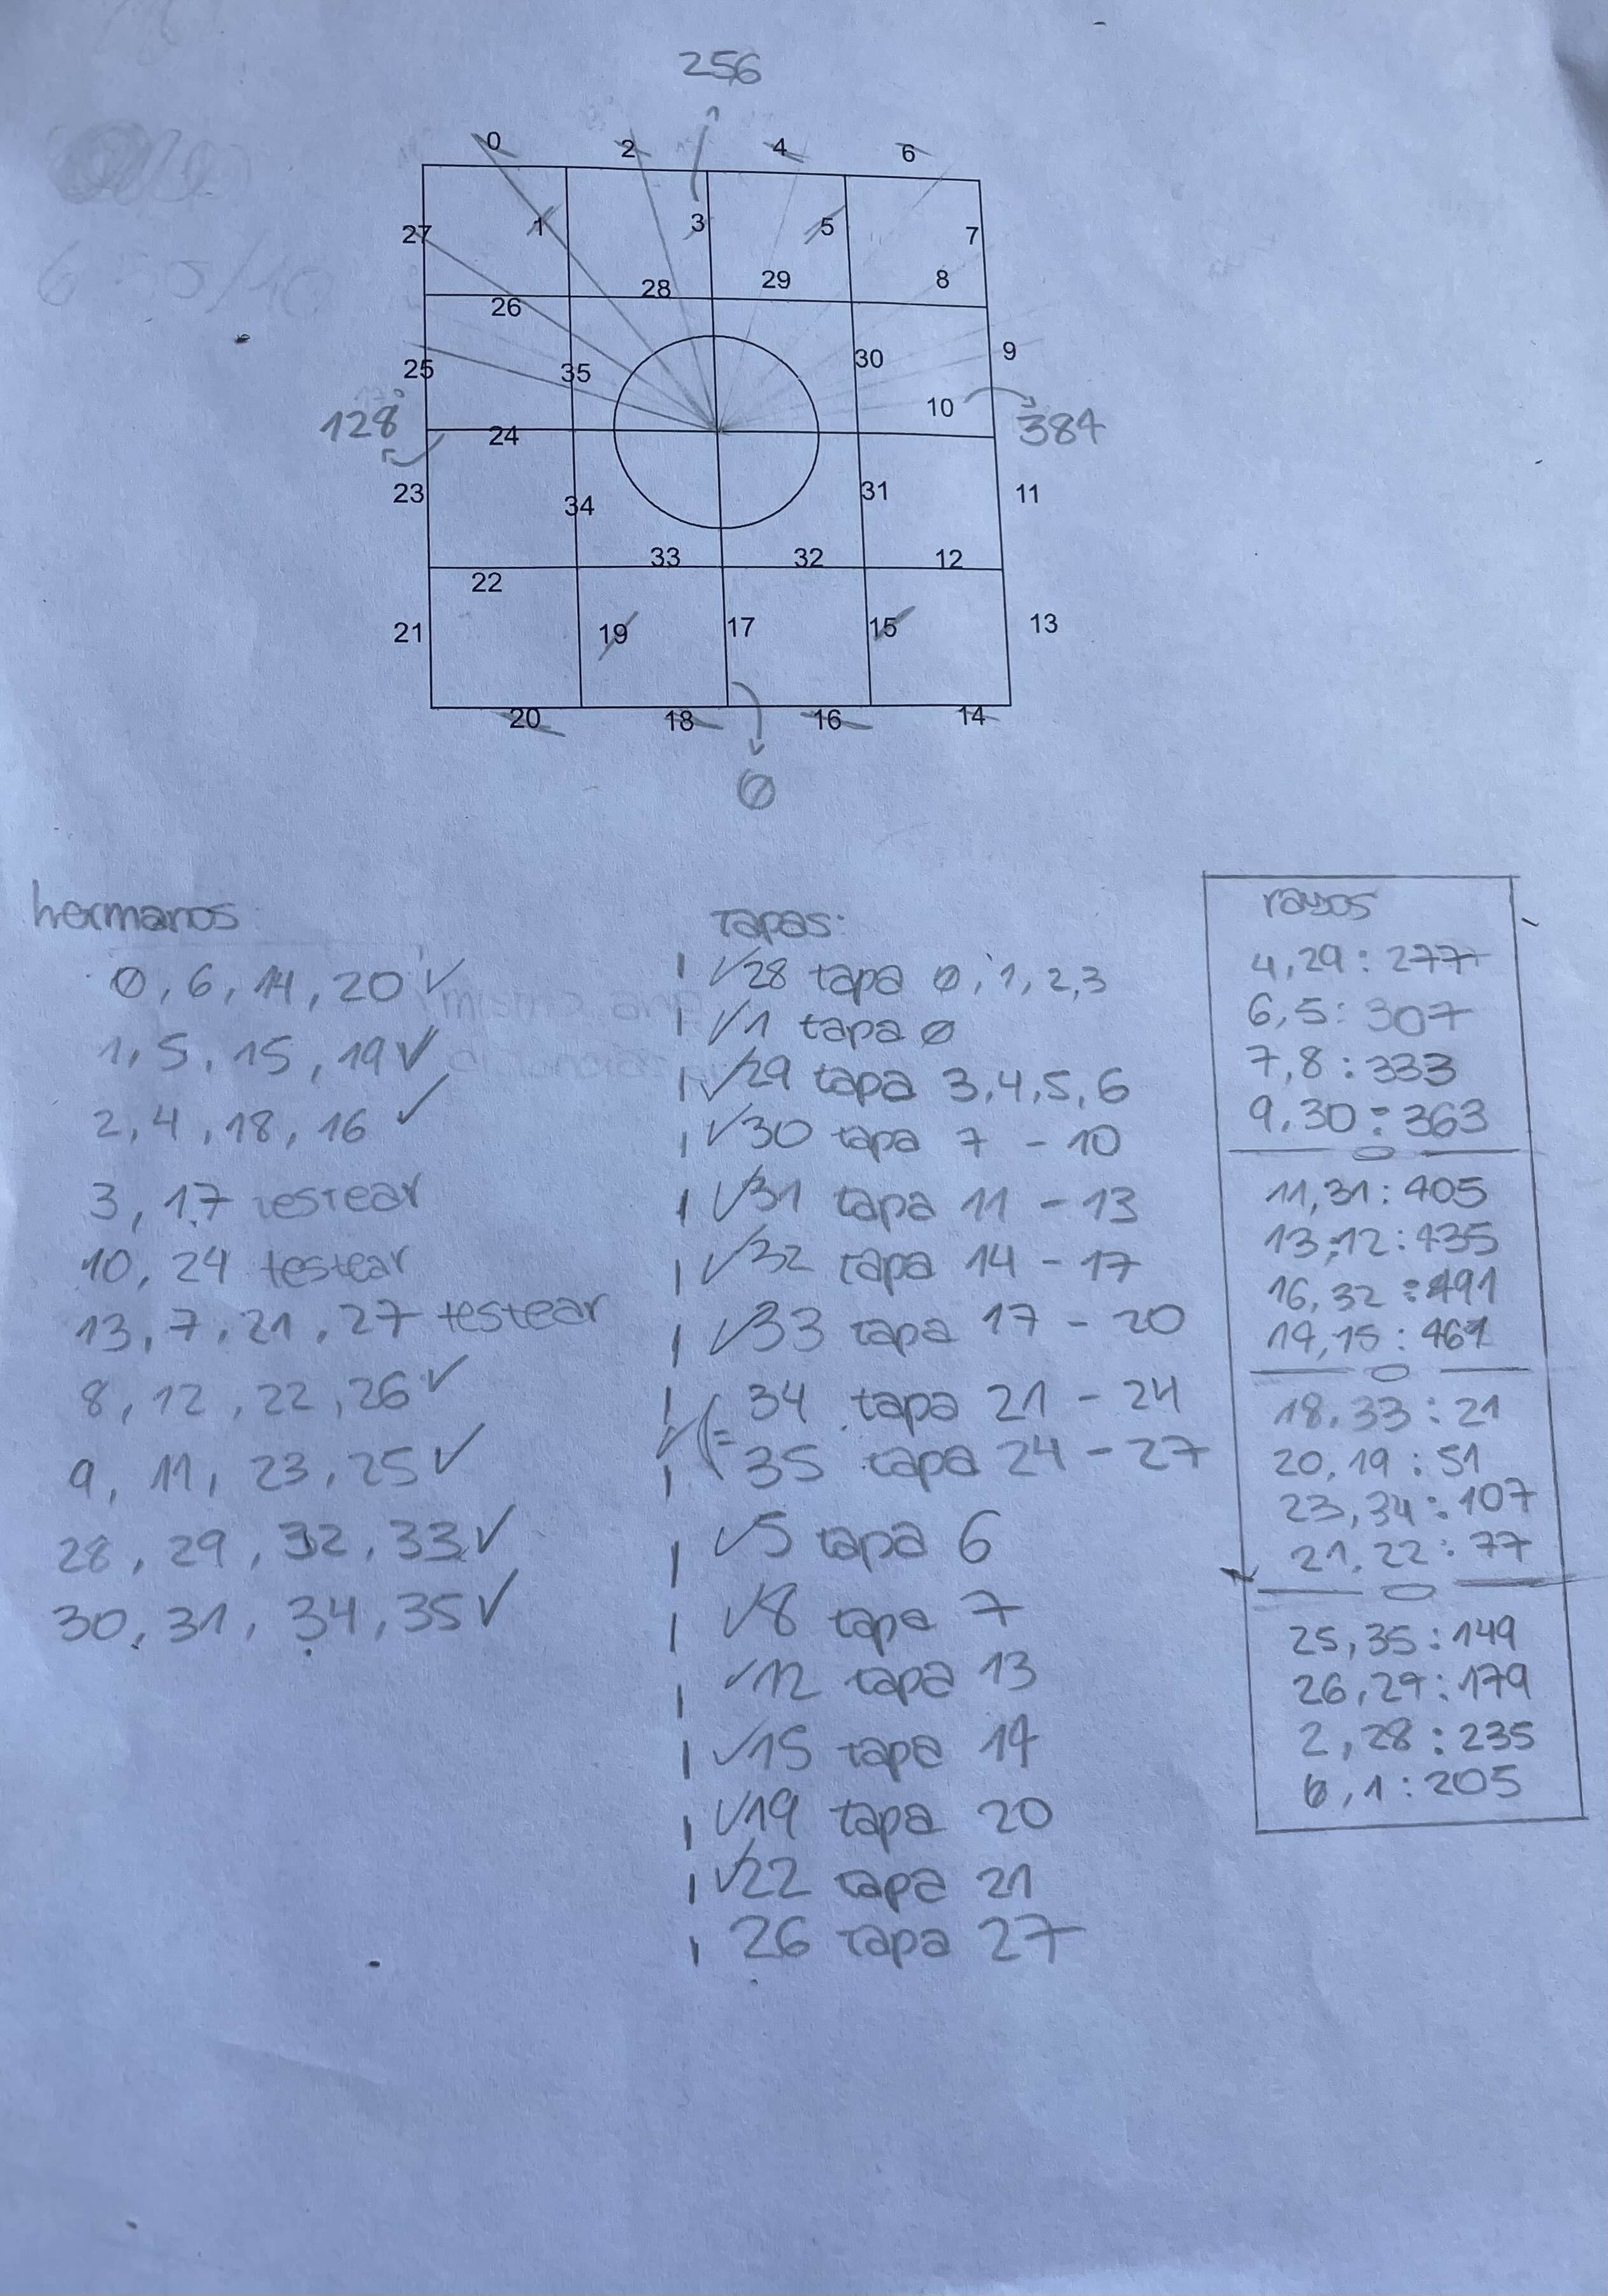 256
0 2 4 6
27 1 3 5 7
28 29 8
26
25 35 30 9
128° 24 10 384
23 34 31 11
33 32 12
22
21 19 17 15 13
20 18 16 14
0
hermanos
0, 6, 14, 20 ✓
1, 5, 15, 19 ✓
2, 4, 18, 16 ✓
3, 17 testear
10, 24 testear
13, 7, 21, 27 testear
8, 12, 22, 26 ✓
9, 11, 23, 25 ✓
28, 29, 32, 33 ✓
30, 31, 34, 35 ✓
Tapas:
✓28 tapa 0, 1, 2, 3
✓1 tapa 0
✓29 tapa 3, 4, 5, 6
✓30 tapa 7 - 10
✓31 tapa 11 - 13
✓32 tapa 14 - 17
✓33 tapa 17 - 20
34 tapa 21 - 24
35 tapa 24 - 27
✓5 tapa 6
✓8 tapa 7
✓12 tapa 13
✓15 tapa 14
✓19 tapa 20
✓22 tapa 21
26 tapa 27
rayos
4, 29 : 277
6, 5 : 307
7, 8 : 333
9, 30 : 363
11, 31 : 405
13, 12 : 435
16, 32 : 491
14, 15 : 461
18, 33 : 21
20, 19 : 51
23, 34 : 107
21, 22 : 77
25, 35 : 149
26, 27 : 179
2, 28 : 235
0, 1 : 205